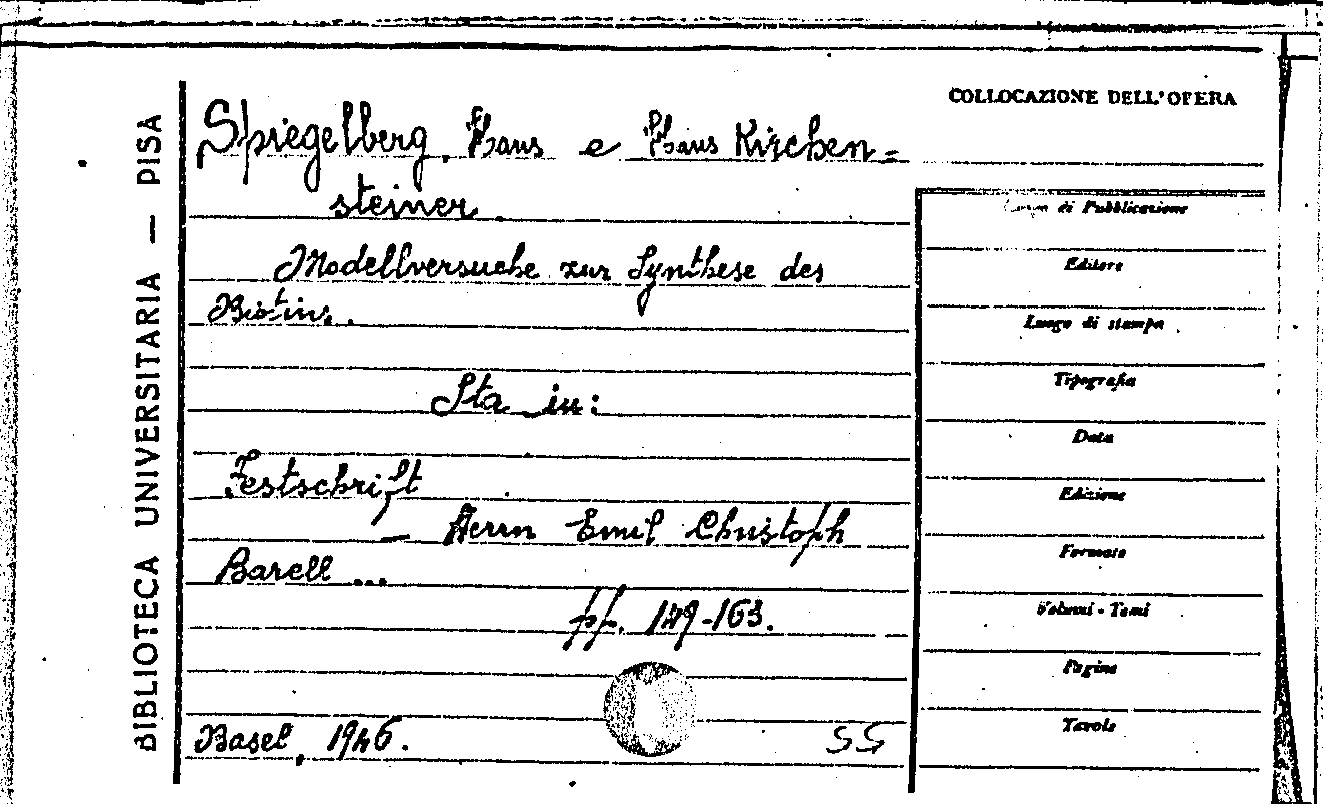 BIBLIOTECA UNIVERSITARIA — PISA
COLLOCAZIONE DELL'OPERA
Spiegelberg, Hans e Hans Kirchen=
steiner
Modellversuche zur Synthese des
Biotins.
Sta in:
Festschrift
— Herrn Emil Christoph
Barell ...
pp. 149-163.
Basel, 1946.
SG
di Pubblicazione
Editore
Luogo di stampa
Tipografia
Data
Edizione
Formato
Volumi - Tomi
Pagine
Tavole